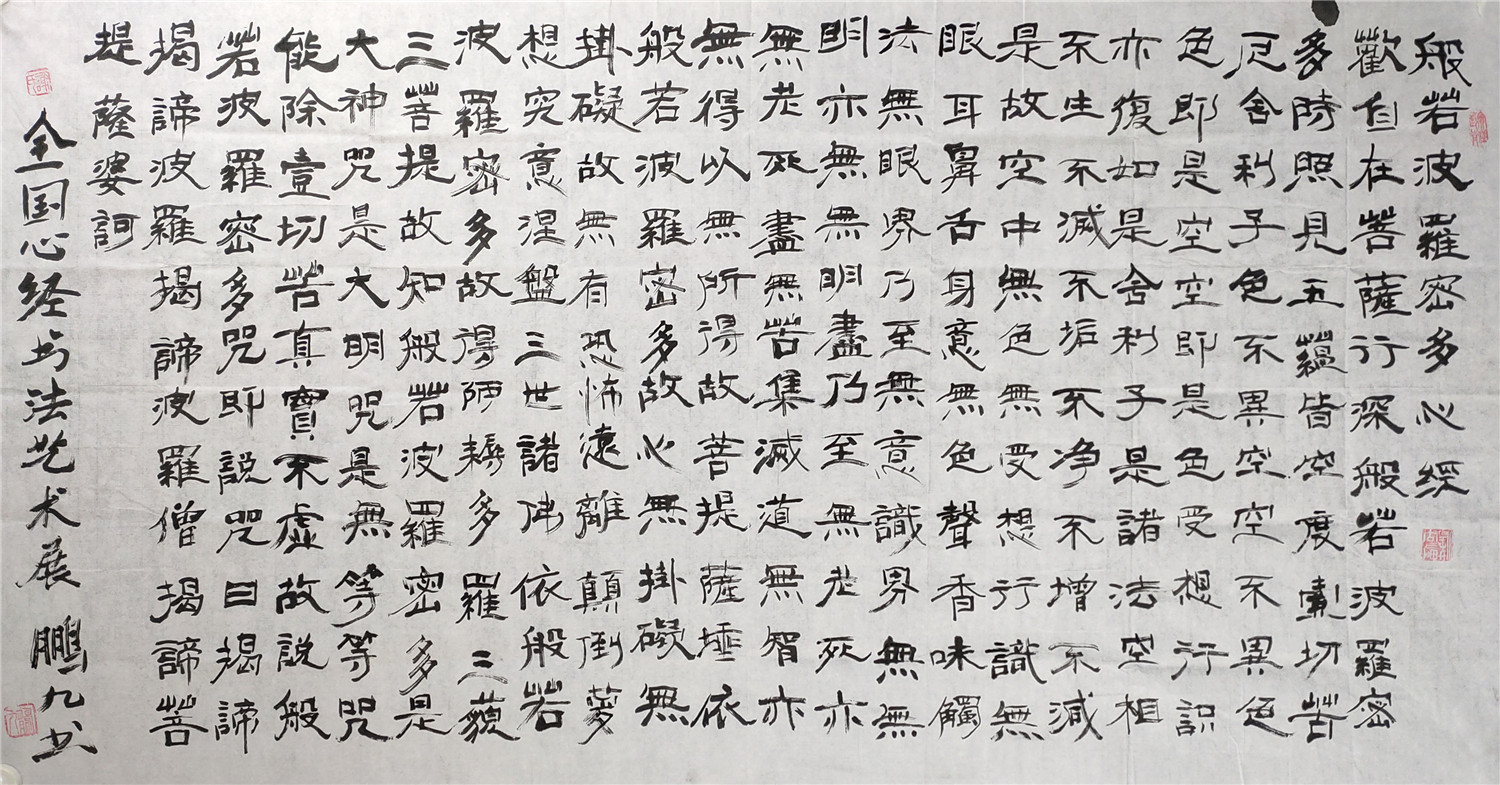 般若波羅密多心經
歡自在菩薩行深般若波羅密
多時照見五蘊皆空度壹切苦
厄舍利子色不異空空不異色
色即是空空即是色受想行识
亦復如是舍利子是諸法空相
不生不滅不垢不净不增不減
是故空中無色無受想行識無
眼耳鼻舌身意無色聲香味觸
法無眼界乃至無意識界無無
明亦無無明盡乃至無老死亦
無老死盡無苦集滅道無智亦
無得以無所得故菩提薩埵依
般若波羅密多故心無掛礙無
掛礙故無有恐怖遠離顛倒夢
想究意涅盤三世諸佛依般若
波羅密多故得阿耨多羅三藐
三菩提故知般若波羅密多是
大神咒是大明咒是無等等咒
能除壹切苦真實不虛故說般
若波羅密多咒即說咒曰揭諦
揭諦波羅揭諦波羅僧揭諦菩
提薩婆訶
全国心经书法艺术展 鵬九书